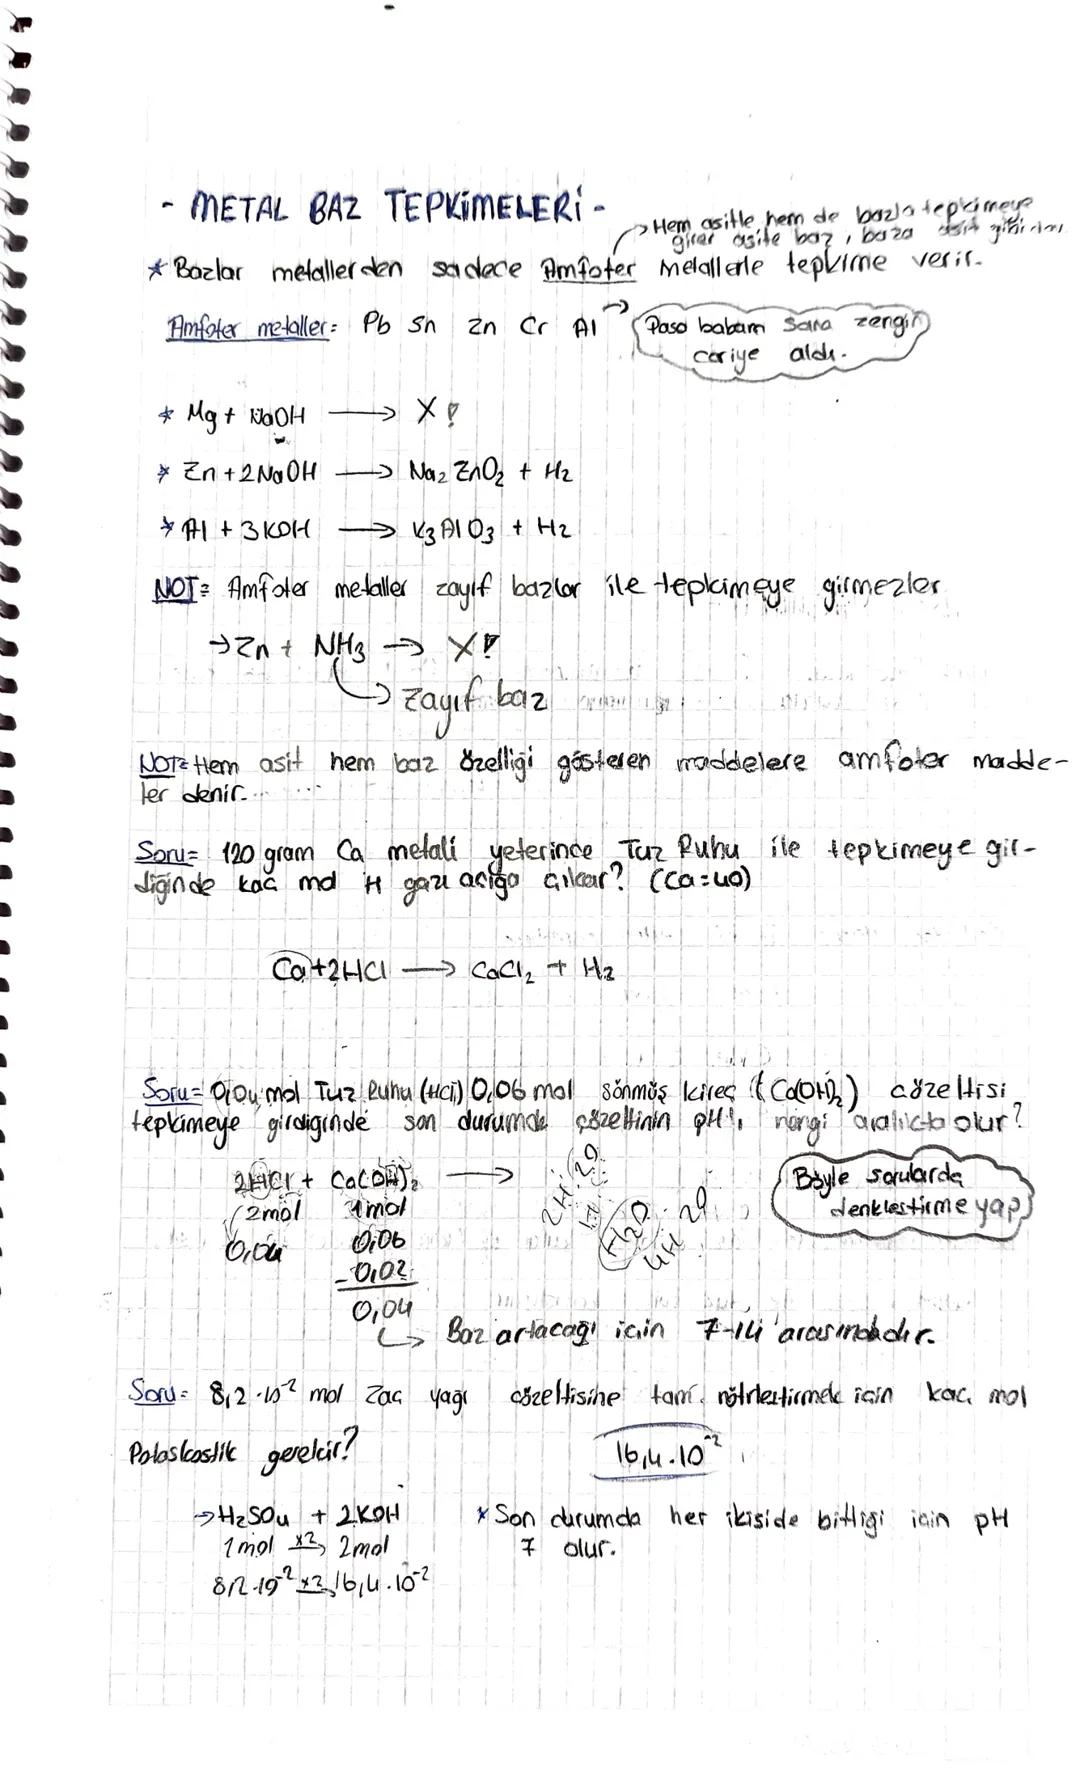 - METAL BAZ TEPKİMELERİ -
→ Hem asitle hem de bazla tepkimeye
girer asite baz, baza asit gibi
* Bazlar metallerden sadece Amfoter metallerle tepkime verir.
Amfoter metaller: Pb Sn Zn Cr Al →
Pasa babam sana zengin
cariye aldı.
* Mg + NaOH → X!
* Zn + 2NaOH → Na2ZnO2 + H2
* Al + 3KOH → K3AlO3 + H2
NOT= Amfoter metaller zayıf bazlar ile tepkimeye girmezler
→ Zn + NH3 → X!
→ Zayıf baz
NOT= Hem asit hem baz özelliği gösteren maddelere amfoter madde-
ler denir.
Soru= 120 gram Ca metali yeterince Tuz Ruhu ile tepkimeye gir-
diğinde kaç mol H gazı açığa çıkar? (Ca=40)
Ca+2HCl → CaCl2 + H2
Soru= 0,04 mol Tuz Ruhu (HCl) 0,06 mol sönmüş kireç (Ca(OH)2) çözeltisi
tepkimeye girdiginde son durumda çözeltinin pH'ı hangi aralıkta olur?
2HCl + Ca(OH)2 →
2mol 1mol
0,04 0,06
-0,02
0,04
2H 2O
H2O
4H 2O
Böyle sorularda
denkleştirme yap
→ Baz artacağı için 7-14 arasındadır.
Soru= 8,2.10-2 mol Zaç yağı çözeltisine tam nötrleştirmek için kaç mol
Potaskostik gerekir?
16,4.10-2
→ H2SO4 + 2KOH
1mol x2→ 2mol
8,2.10-2 x2→ 16,4.10-2
* Son durumda her ikiside bittiği için pH
7 olur.